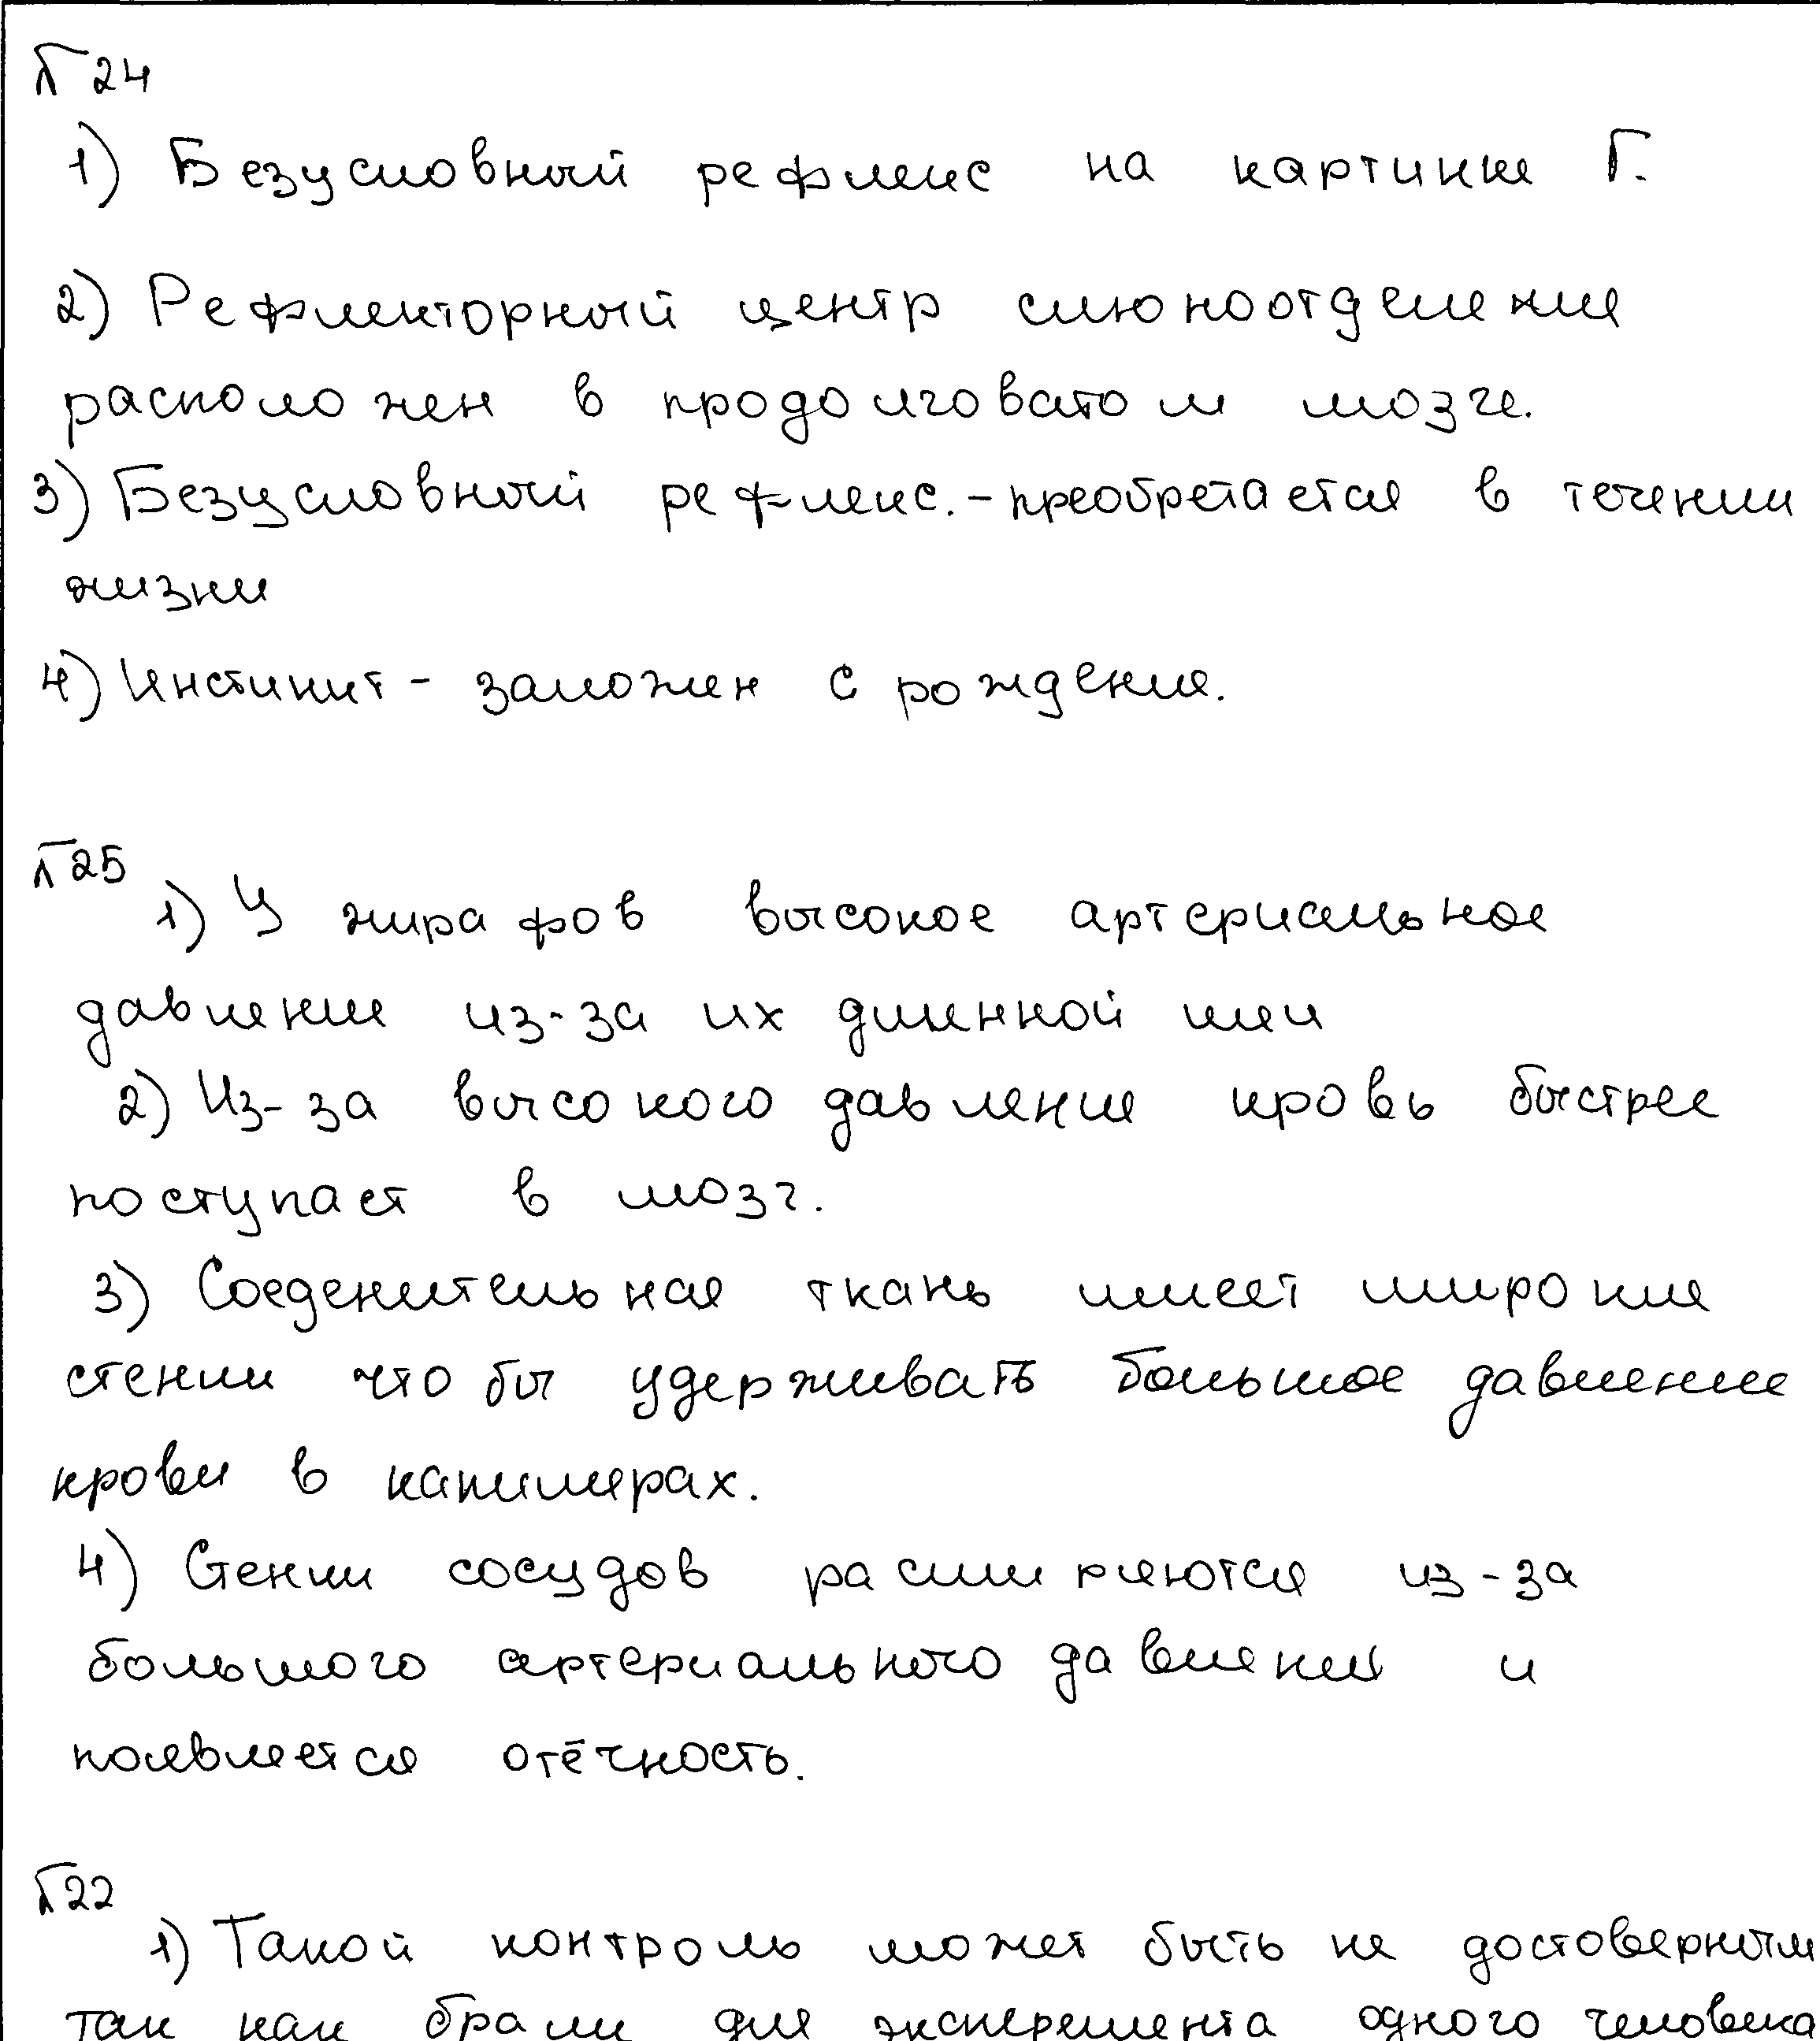 №24
1) Безусловный рефлекс на картинке Г.
2) Рефлекторный центр слюноотделения
расположен в продолговатом мозге.
3) Безусловный рефлекс. - преобретается в течении
жизни
4) Инстинкт - заложен с рождения.
№25
1) У жирафов высокое артериальное
давление из-за их длинной шеи
2) Из-за высокого давления кровь быстрее
поступает в мозг.
3) Соеденительная ткань имеет широкие
стенки что бы удерживать большое давление
крови в капилярах.
4) Стенки сосудов расширяются из-за
большого артериального давления и
появляется отёчность.
№22
1) Такой контроль может быть не достоверным
так как брали для эксперемента одного человека